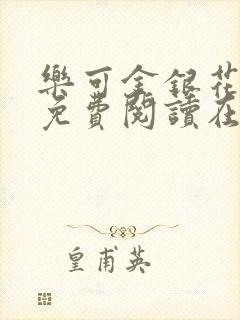 樂可金銀花
免費閱讀在
皇甫英